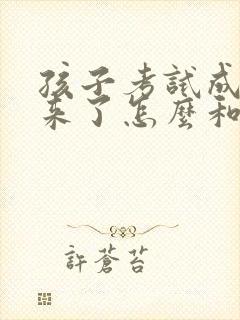 孩子考試成
來了怎麼和
許蒼苔